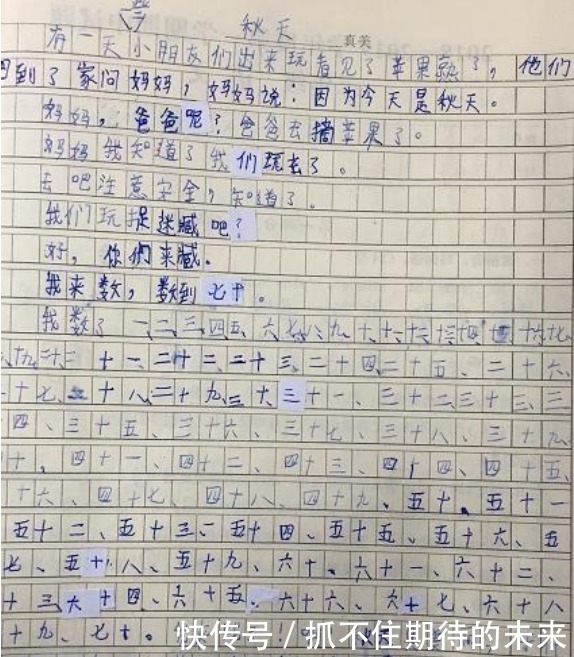 秋天
真美
有一天小朋友们出来玩看见了苹果熟了，他们
回到了家问妈妈，妈妈说：因为今天是秋天。
妈妈，爸爸呢？爸爸去摘苹果了。
妈妈我知道了我们玩去了。
去吧注意安全，知道了。
我们玩捉迷藏吧？
好，你们来藏。
我来数，数到七十。
我数了一、二、三、四、五、六、七、八、九、十、十一、十二、十三、十四、十五、十六、十七
、十九、二十、二十一、二十二、二十三、二十四、二十五、二十六、
十七、二十八、二十九、三十、三十一、三十二、三十三、三
四、三十五、三十六、三十七、三十八、三十九、
十、四十一、四十二、四十三、四十四、四十五、
十六、四十七、四十八、四十九、五十、五十一
五十二、五十三、五十四、五十五、五十六、五
七、五十八、五十九、六十、六十一、六十二、
十三、六十四、六十五、六十六、六十七、六十八
十九、七十。
快传号 / 抓不住期待的未来